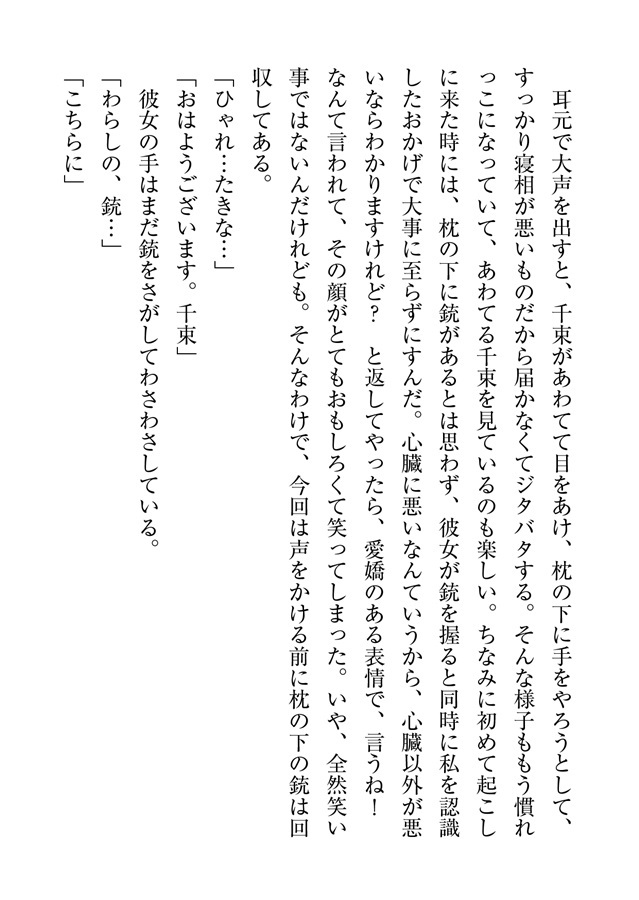 耳元で大声を出すと、千束があわてて目をあけ、枕の下に手をやろうとして、
すっかり寝相が悪いものだから届かなくてジタバタする。そんな様子ももう慣れ
っこになっていて、あわてる千束を見ているのも楽しい。ちなみに初めて起こし
に来た時には、枕の下に銃があるとは思わず、彼女が銃を握ると同時に私を認識
したおかげで大事に至らずにすんだ。心臓に悪いなんていうから、心臓以外が悪
いならわかりますけれど？　と返してやったら、愛嬌のある表情で、言うね！
なんて言われて、その顔がとてもおもしろくて笑ってしまった。いや、全然笑い
事ではないんだけれども。そんなわけで、今回は声をかける前に枕の下の銃は回
収してある。
「ひゃれ…たきな…」
「おはようございます。千束」
　彼女の手はまだ銃をさがしてわさわさしている。
「わらしの、銃…」
「こちらに」